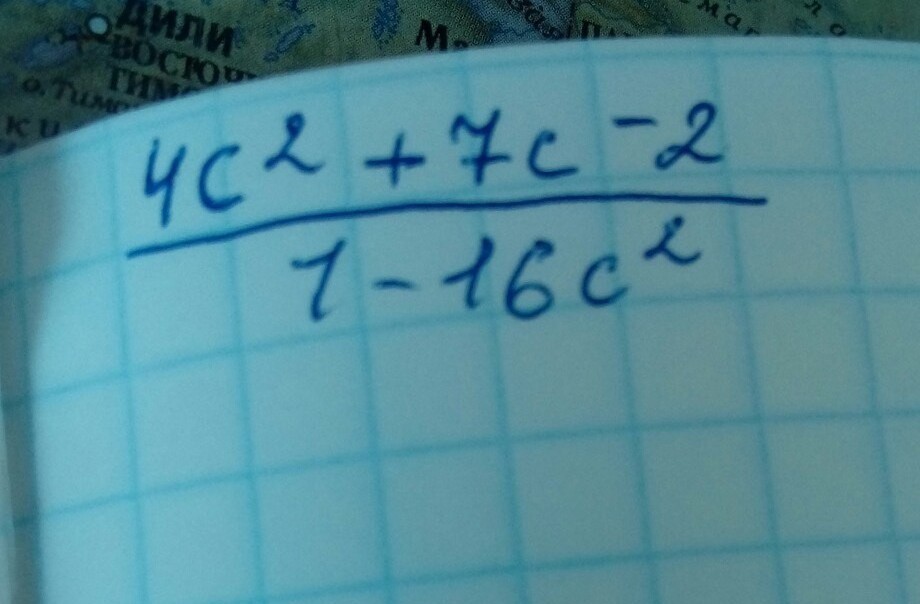 ДИЛИ
ВОСТОЧ
ТИМО
о. Тимо
4c² + 7c - 2
1 - 16c²